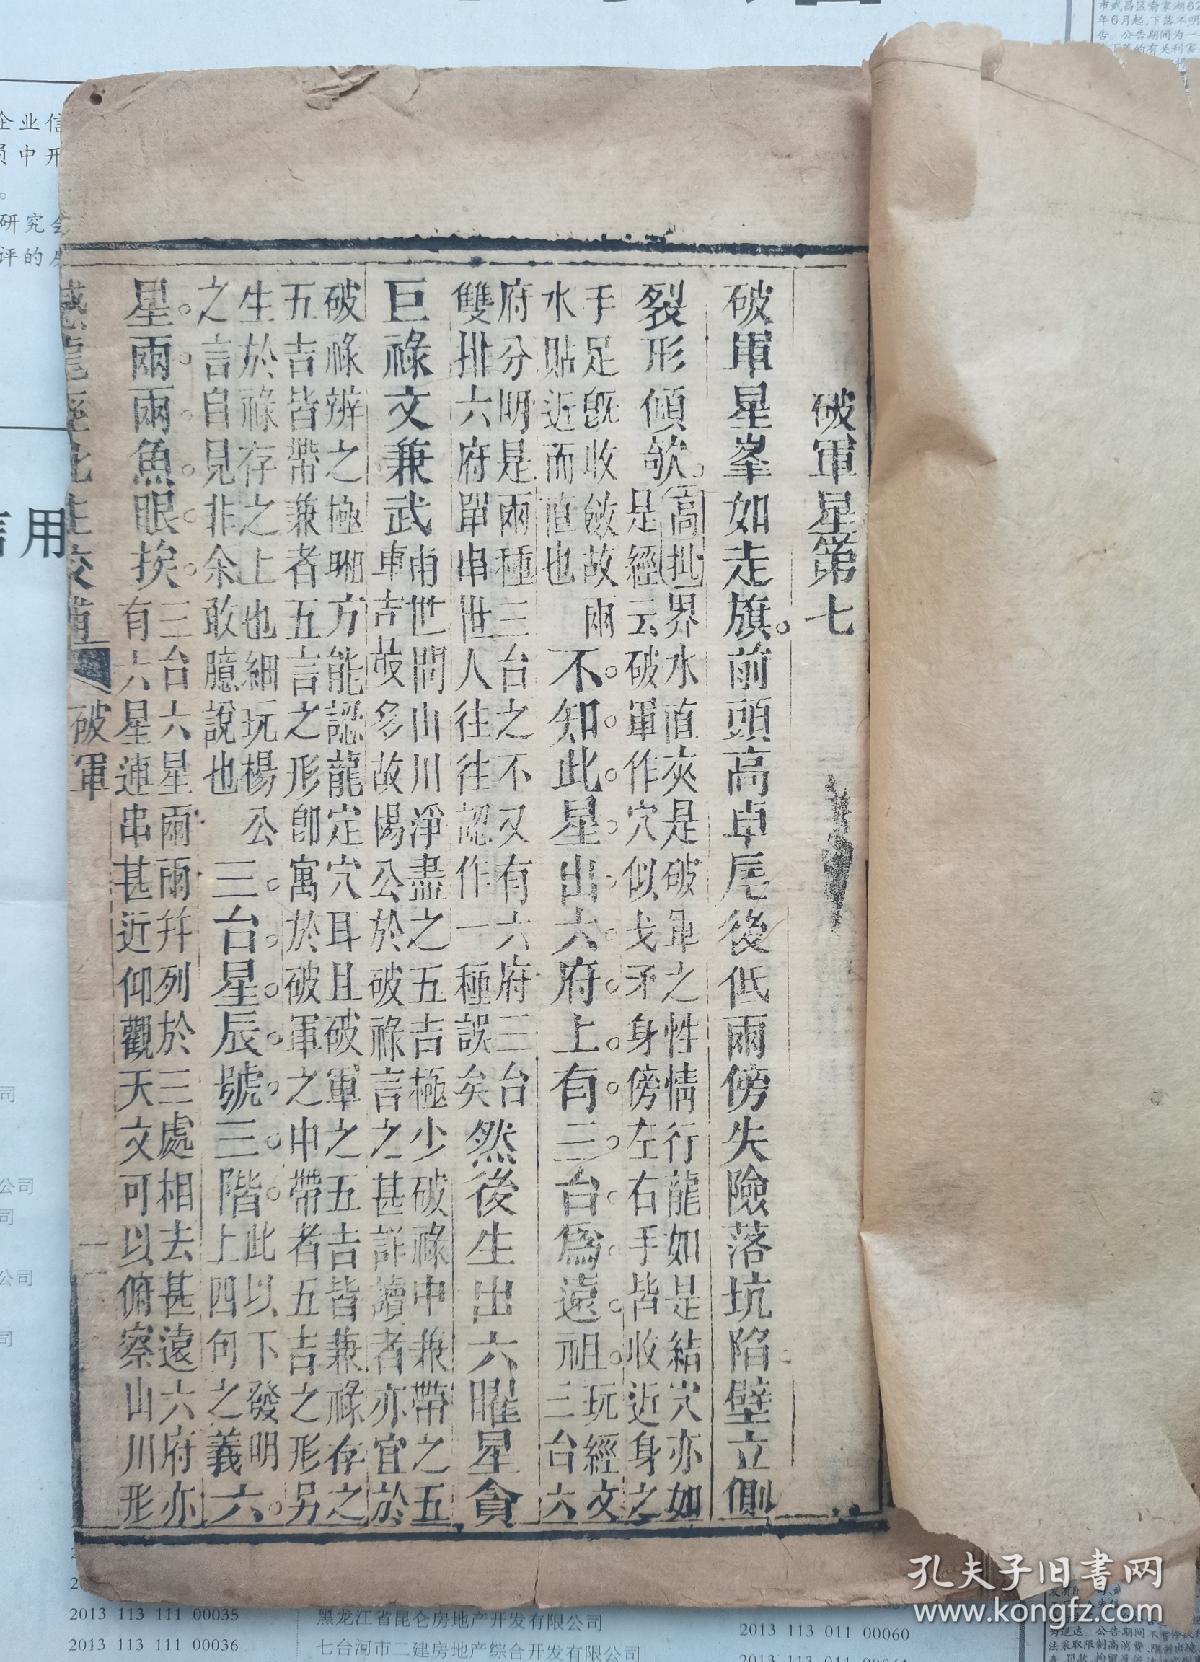 破軍星第七
破軍星峯如走旗。前頭高卓尾後低兩傍失險落坑陷壁立側
裂形傾欹。
高批界水直夾是破軍之性情行龍如是結穴亦如
是經云破軍作穴似戈矛身傍左右手皆收近身之
手足既收斂故兩
水貼近而直也
不知此星出六府上有三台為遠祖。
玩經文
三台六
府分明是兩種三台之不又有六府三台
雙排六府單串世人往往認作一種誤矣
然後生出六曜星貪
巨祿文兼武
甫世間山川淨盡之五吉極少破祿中兼帶之五
車吉故多故楊公於破祿言之甚詳讀者亦宜於
破祿辨之極䎸方能認龍定穴耳且破軍之五吉皆兼祿存之
五吉皆帶兼者五言之形卽寓於破軍之中帶者五吉之形另
生於祿存之上也細玩楊公
之言自見非余敢臆說也
三台星辰號三階。
此以下發明
上四句之義
六
星兩兩魚眼挨。
三台六星兩兩并列於三處相去甚遠六府亦
有六星連串甚近仰觀天文可以俯察山川形
破軍
企业信
员中开
研究会
评的
信用
公司
司
公司
司
2013 113 111 00035
2013 113 111 00036
黑龙江省昆仑房地产开发有限公司
七台河市二建房地产综合开发有限公司
2013 113 011 00060
孔夫子旧书网
www.kongfz.com